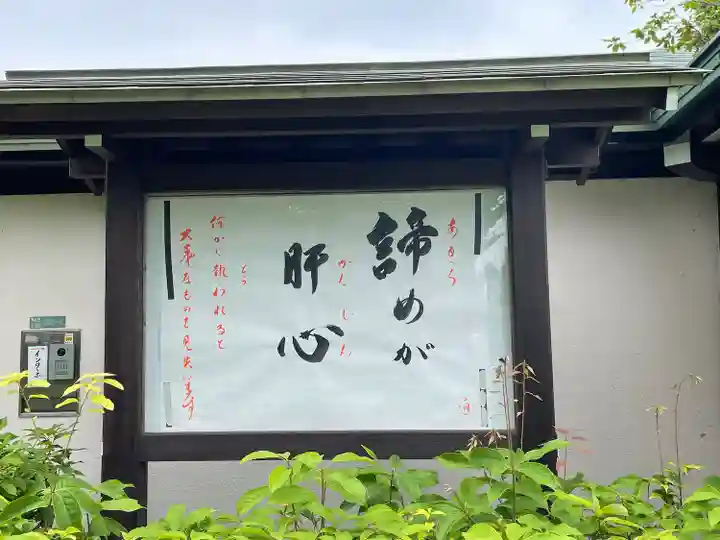 諦めが
あきら
肝心
かんじん
何かに執われると
とら
大事なものを見失います
通
インターホン